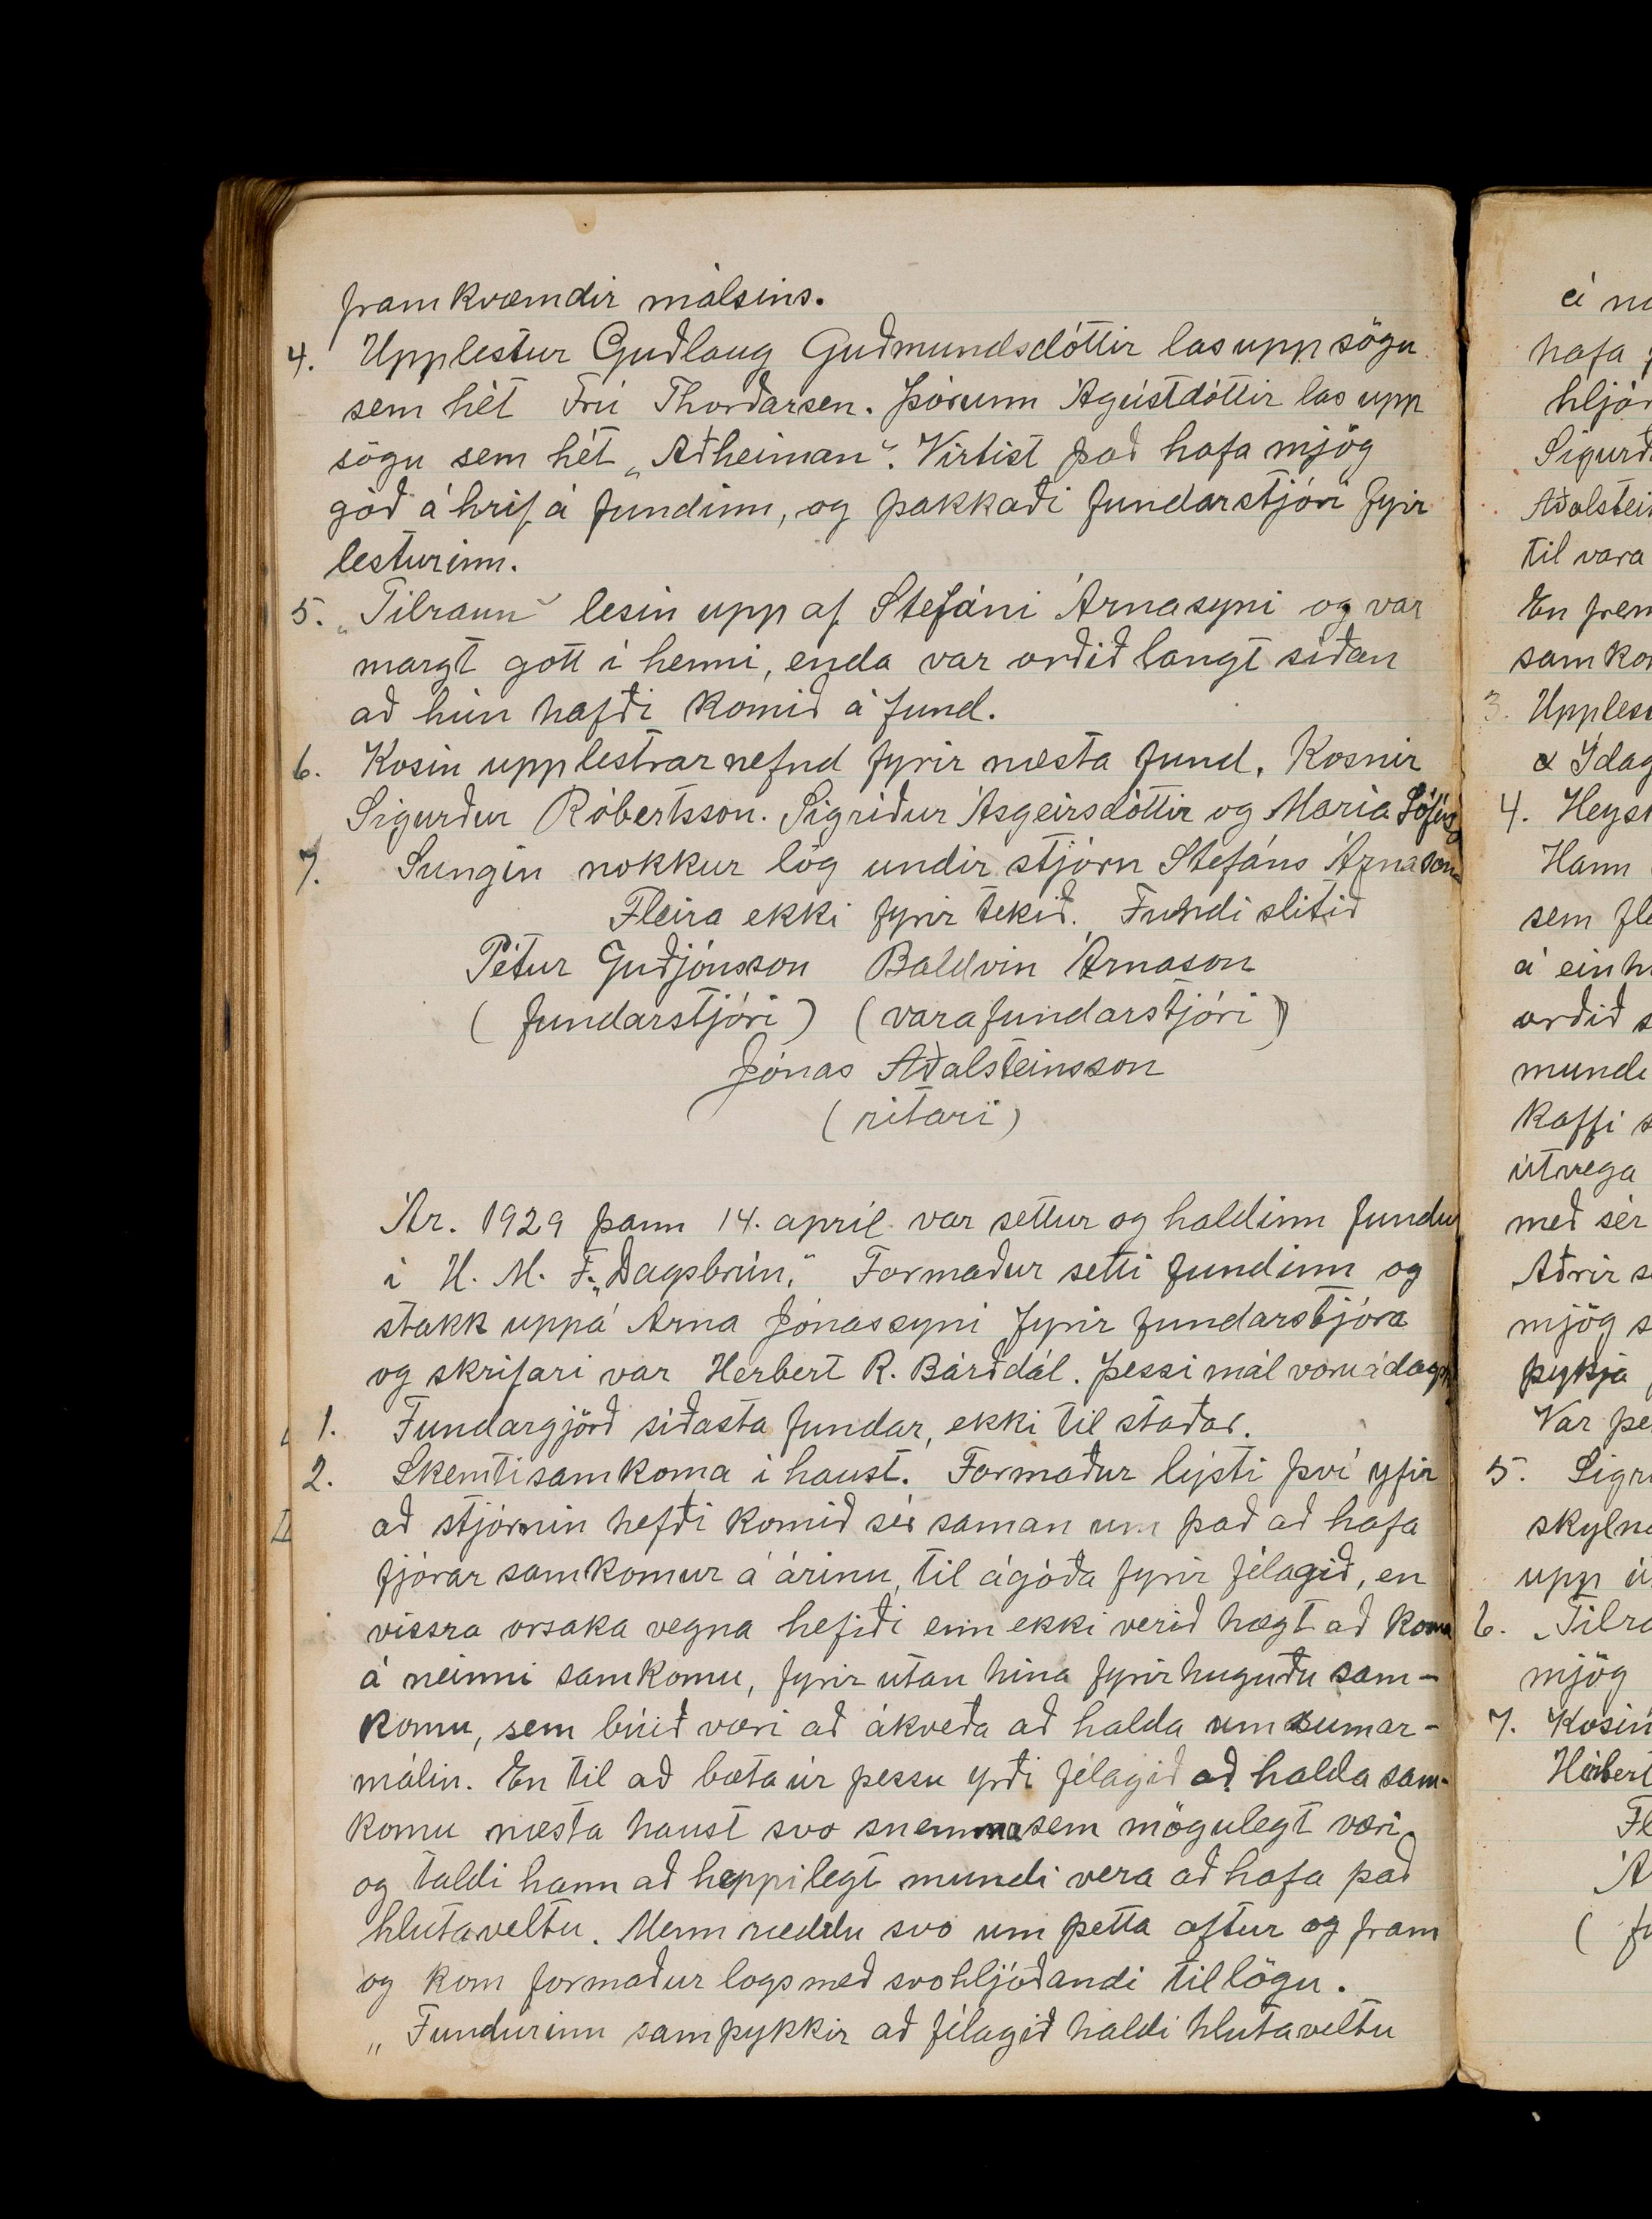 framkvæmdir málsins.
4. Upplestur Guðlaug Guðmundsdóttir las upp sögu
sem hét Frú Thordarsen. Þórunn Ágústdóttir las upp
sögu sem hét „Aðheiman“. Virtist það hafa mjög
góð áhrif á fundinn, og þakkaði fundarstjóri fyrir
lesturinn.
5. „Tilraun“ lesin upp af Stefáni Árnasyni og var
margt gott í henni, enda var orðið langt síðan
að hún hafði komið á fund.
6. Kosin upplestrarnefnd fyrir næsta fund. Kosnir
Sigurður Róbertsson. Sigríður Ásgeirsdóttir og María
7. Sungin nokkur lög undir stjórn Stefáns Árnasonar
Fleira ekki fyrir tekið. Fundi slitið
Pétur Guðjónsson Baldvin Árnason
(fundarstjóri) (varafundarstjóri)
Jónas Aðalsteinsson
(ritari)
Ár. 1929 þann 14. apríl var settur og haldinn fundur
í U. M. F. „Dagsbrún“. Formaður setti fundinn og
stakk uppá Árna Jónassyni fyrir fundarstjóra
og skrifari var Herbert R. Bárðdál. Þessi mál voru á dagskr.
1. Fundargjörð síðasta fundar, ekki til staðar.
2. Skemtisamkoma í haust. Formaður lýsti því yfir
að stjórnin hefði komið sér saman um það að hafa
fjórar samkomur á árinu, til ágóða fyrir félagið, en
vissra orsaka vegna hefði enn ekki verið hægt að koma
á neinni samkomu, fyrir utan hina fyrirhuguðu sam-
komu, sem búið væri að ákveða að halda um sumar-
málin. En til að bæta úr þessu yrði félagið að halda sam-
komu næsta haust svo snemma sem mögulegt væri
og taldi hann að heppilegt mundi vera að hafa það
hlutaveltu. Menn ræddu svo um þetta aftur og fram
og kom formaður logs með svohljóðandi tillögu.
„Fundurinn samþykkir að félagið haldi hlutaveltu
á
hafa
Sigurð
Aðalstein
til vara
En frem
samkom
3. Upples
4. Heys
Hann
sem fle
á einh
orðið s
mundi
kaffi s
útvega
með sér
Aðrir s
mjög s
þykja
Var þe
5. Sigr
skyln
upp
6. „Tilra
mjög
7. Kosin
Herbert
Fl
Á
( fu